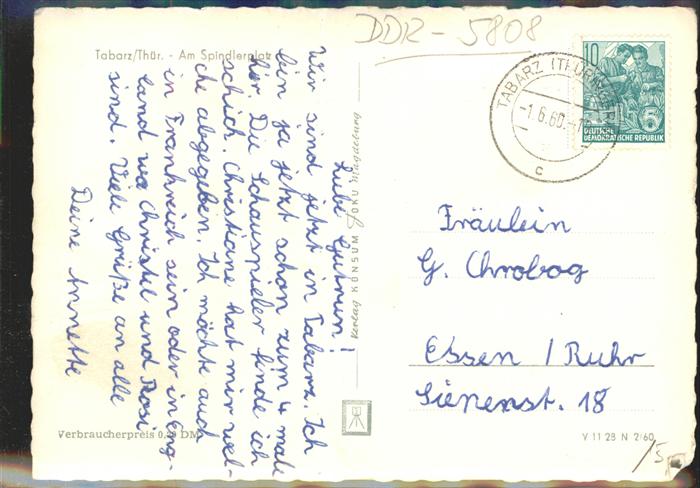 DDR - 5808
Tabarz/Thür. - Am Spindlerplatz
Liebe Gutrun!
Wir sind jetzt in Tabarz. Ich
bin ja jetzt schon zum 4 male
hir. Die Schauspieler finde ich
schick. Christiane hat mir wel-
che abgegeben. Ich möchte auch
in Frankreich sein oder in Eng-
land wo Christel und Rosi
sind. Viele Grüße an alle
Deine Annette
Verlag KONSUM FOKU Magdeburg
TABARZ (THÜR
-1.6.60.
c
10
5
DEUTSCHE
DEMOKRATISCHE REPUBLIK
Fräulein
G. Chrobog
Essen / Ruhr
Sienenst. 18
Verbraucherpreis DM
V 11 28 N 2/60